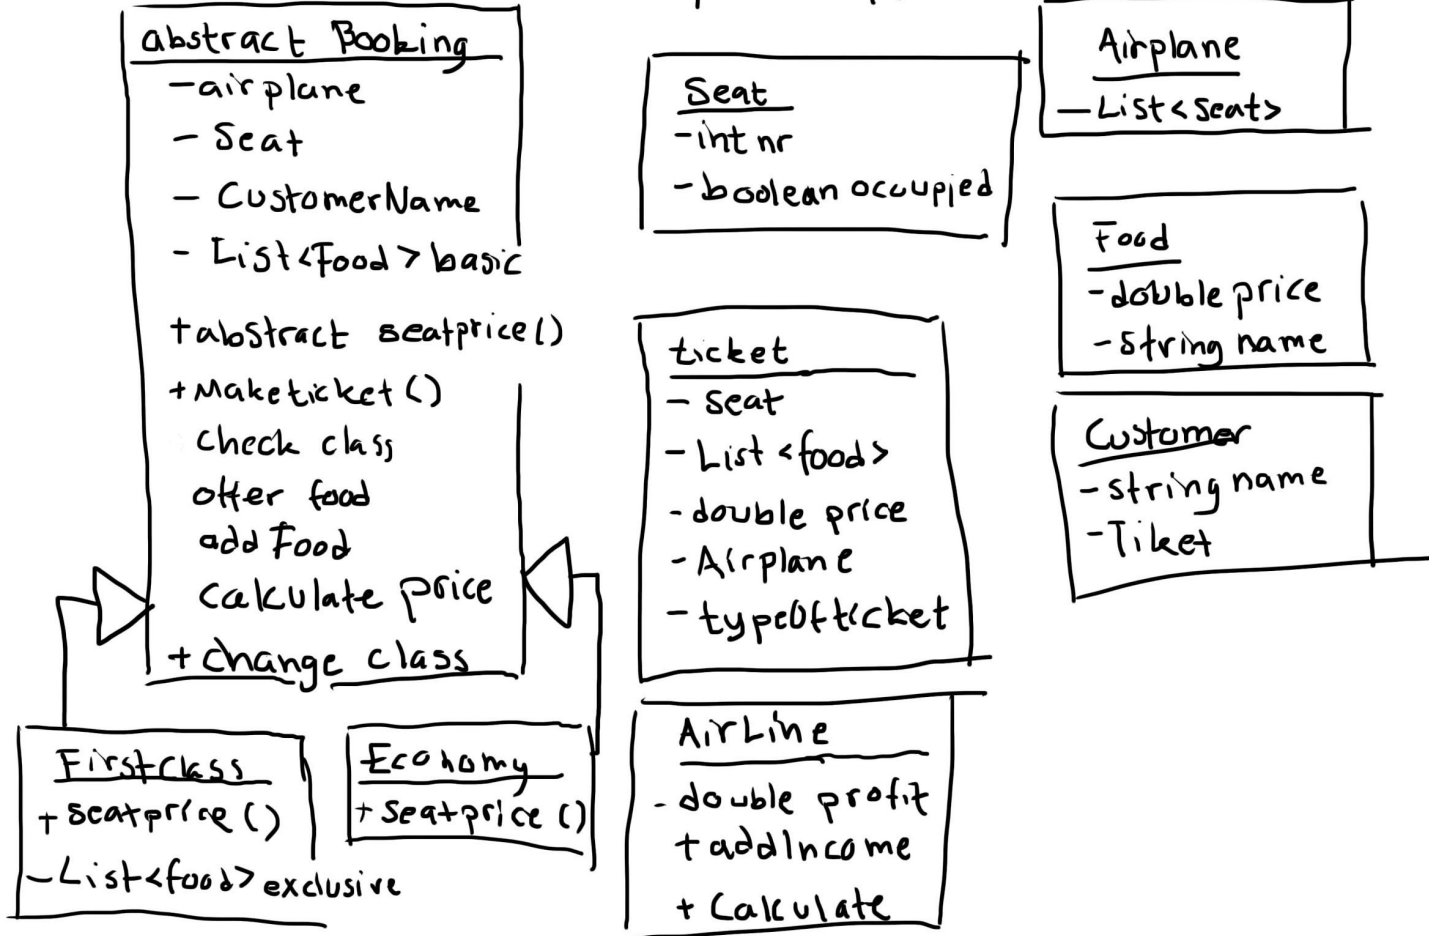 abstract Booking
- airplane
- Seat
- CustomerName
- List<Food> basic
+ abstract seatprice()
+ Maketicket()
check class
offer food
add Food
Calculate price
+ Change class
FirstClass
+ seatprice()
- List<food> exclusive
Economy
+ Seatprice()
Seat
- int nr
- boolean occupied
ticket
- Seat
- List <food>
- double price
- Airplane
- typeOfticket
AirLine
- double profit
+ addIncome
+ Calculate
Airplane
- List<Seat>
Food
- double price
- String name
Customer
- string name
- Tiket